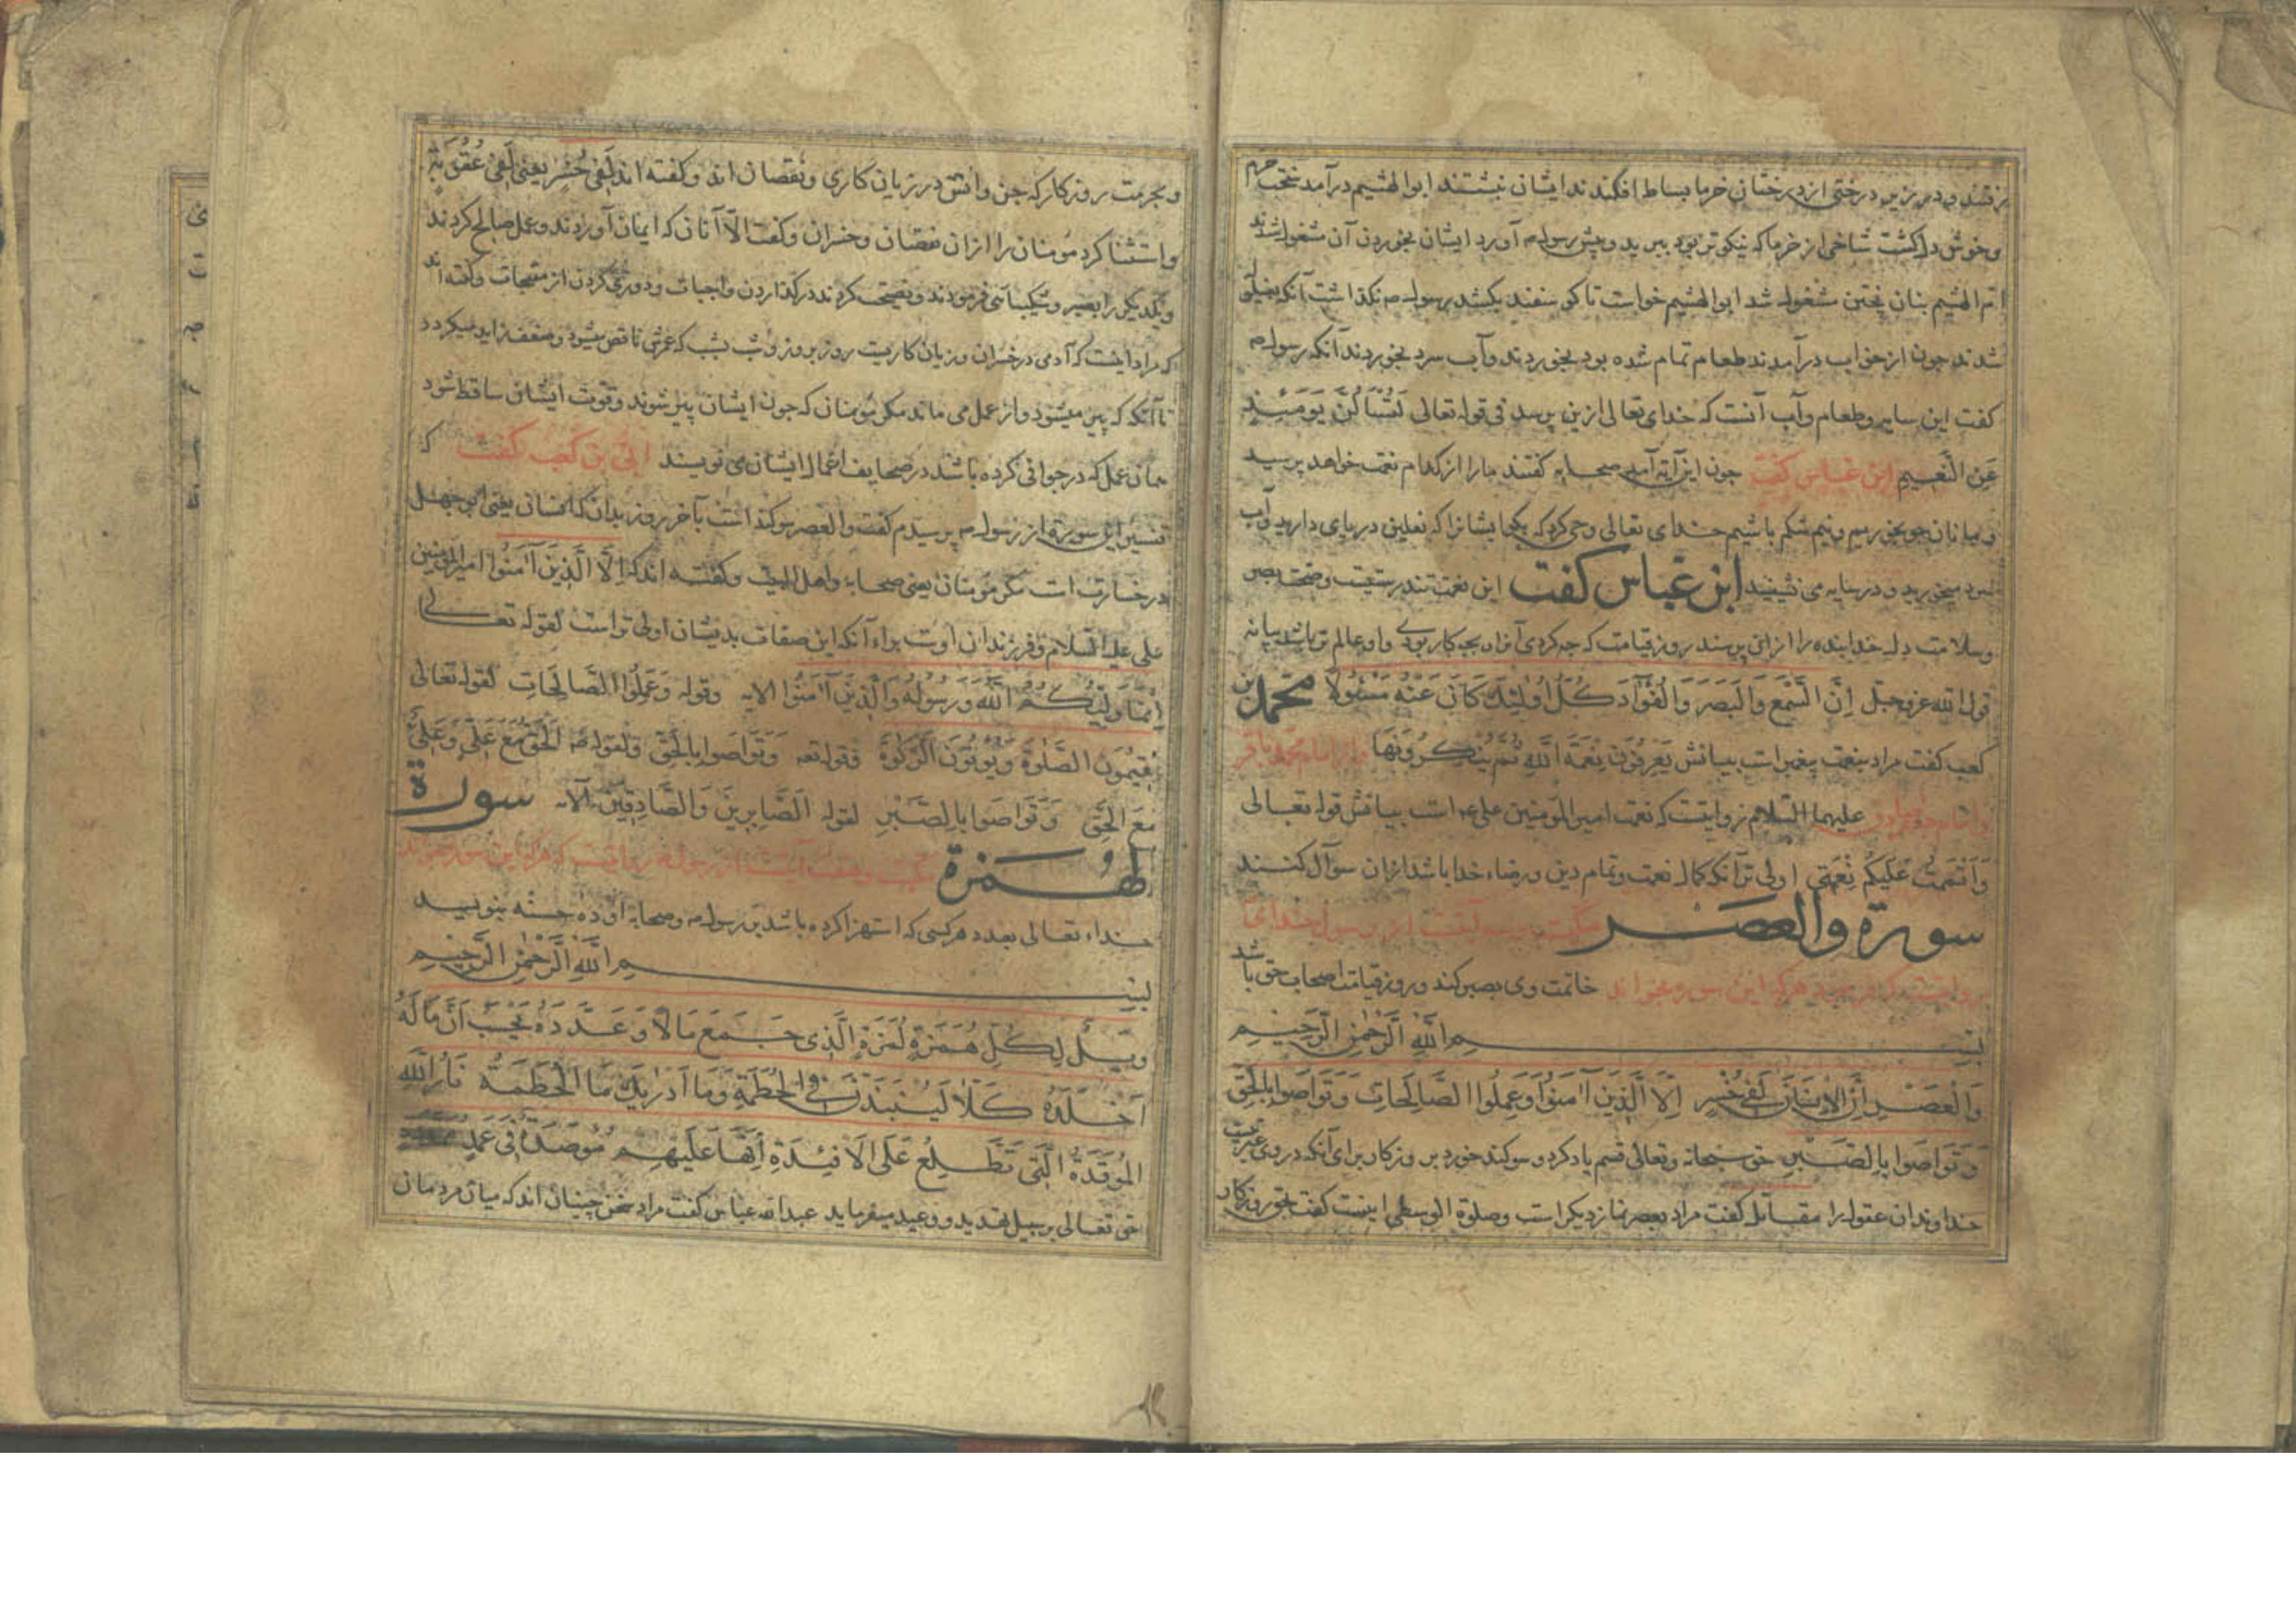 برفتند و در زیر درختی از درختان خرما بساط افکندند ایشان بنشستند ابوالهثیم درآمد
و خوش دل گشت شاخی از خرما که نیکوتر بود ببرید و پیش رسول م آورد ایشان بخوردن آن مشغول شدند
ام الهثیم بنان پختن مشغول شد ابوالهثیم خواست تا گوسفند بکشد رسول م نگذاشت آنگه
شدند چون از خواب درآمدند طعام تمام شده بود بخوردند و آب سرد بخوردند آنگه رسول م
کفت این سایه و طعام و آب آنست که خدای تعالی ازین پرسد فی قوله تعالی لَتُسْأَلُنَّ يَوْمَئِذٍ
عَنِ النَّعِيمِ ابن عباس کفت چون این آیه آمد صحابه کفتند ما را از کدام نعمت خواهد پرسید
و ما نان جو بخوریم و نیم شکم باشیم خدای تعالی وحی کرد که بگو ایشانرا که نعلین در پای دارید و آب
سرد میخورید و در سایه می نشینید ابن عباس کفت این نعمت تندرستیست و صحت بصر
و سلامت دل خدا بنده را از این پرسند روز قیامت که چه کردی آنرا و بچه کار بودی و او عالم تر باشد بیانه
قول الله عز و جل اِنَّ السَّمْعَ وَالْبَصَرَ وَالْفُؤَادَ كُلُّ اُولٰئِكَ كَانَ عَنْهُ مَسْئُولًا محمد بن
کعب کفت مراد بنعمت پیغمبر است بیانش يَعْرِفُونَ نِعْمَةَ اللهِ ثُمَّ يُنْكِرُونَهَا و از امام محمد باقر
و امام جعفر صادق علیهما السلام روایتست که نعمت امیر المومنین علی ع است بیانش قوله تعالی
وَاَتْمَمْتُ عَلَيْكُمْ نِعْمَتِي اولی تر آنکه کمال نعمت و تمام دین و رضاء خدا باشد از آن سوال کنند
سورة والعصر مکیست و سه آیتست از رسول خدای
روایتست که فرمود هر که این سوره بخواند خاتمت وی بصبر کند و روز قیامت اصحاب حق باشد
بسم الله الرحمن الرحيم
وَالْعَصْرِ اِنَّ الْاِنْسَانَ لَفِي خُسْرٍ اِلَّا الَّذِينَ آمَنُوا وَعَمِلُوا الصَّالِحَاتِ وَتَوَاصَوْا بِالْحَقِّ
وَتَوَاصَوْا بِالصَّبْرِ حق سبحانه و تعالی قسم یاد کرد و سوکند خورد بروزکار برای آنکه در وی عبرتست
خداوندان عقول را مقاتل کفت مراد بعصر نماز دیکر است و صلوة الوسطی اینست کفت بحق روزکار
و بحرمت روزکار که جن و انس در زیان کاری و نقصان اند و کفته اند لَفِي خُسْرٍ یعنی لَفِي عُقُوبَةٍ
و استثنا کرد مومنان را از آن نقصان و خسران و کفت الّا آنان که ایمان آوردند و عمل صالح کردند
و یکدیکر را بصبر و شکیبائی فرمودند و نصیحت کردند در گذاردن واجبات و دوری کردن از مقبحات و کفته اند
که مراد اینست که آدمی در خسران و زیان کاریست روز بروز و شب بشب که عمرش ناقص میشود و ضعف زاید میگردد
تا آنکه که پیر میشود و از عمل می ماند مکر مومنان که چون ایشان پیر شوند و قوت ایشان ساقط شود
همان عمل که در جوانی کرده باشند در صحایف اعمال ایشان می نویسند ابی بن کعب کفت که
تفسیر این سوره از رسول م پرسیدم کفت والعصر سوکند است بآخر روز بدان که انسان یعنی ابی جهل
در خسارت است مکر مومنان یعنی صحابه و اهل البیت و کفته اند که اِلَّا الَّذِينَ آمَنُوا امیر المومنین
علی علیه السلام و فرزندان اوست برای آنکه این صفات بدیشان اولی تر است لقوله تعالی
اِنَّمَا وَلِيُّكُمُ اللهُ وَرَسُولُهُ وَالَّذِينَ آمَنُوا الایه وقوله وَعَمِلُوا الصَّالِحَاتِ لقوله تعالی
يُقِيمُونَ الصَّلٰوةَ وَيُؤْتُونَ الزَّكٰوةَ فقوله تعه وَتَوَاصَوْا بِالْحَقِّ ولقوله ص اَلْحَقُّ مَعَ عَلِيٍّ وَعَلِيٌّ
مَعَ الْحَقِّ وَتَوَاصَوْا بِالصَّبْرِ لقوله اَلصَّابِرِينَ وَالصَّادِقِينَ الآیه سورة
الهمزة مکیست و نه آیتست از رسول م روایتست که هر که این سوره بخواند
خداء تعالی بعدد هر کسی که استهزا کرده باشد بر رسول م و صحابه او ده حسنه بنویسد
بسم الله الرحمن الرحيم
وَيْلٌ لِكُلِّ هُمَزَةٍ لُمَزَةٍ الَّذِي جَمَعَ مَالًا وَعَدَّدَهُ يَحْسَبُ اَنَّ مَالَهُ
اَخْلَدَهُ كَلَّا لَيُنْبَذَنَّ فِي الْحُطَمَةِ وَمَا اَدْرٰيكَ مَا الْحُطَمَةُ نَارُ اللهِ
الْمُوقَدَةُ الَّتِي تَطَّلِعُ عَلَى الْاَفْئِدَةِ اِنَّهَا عَلَيْهِمْ مُوصَدَةٌ فِي عَمَدٍ
حق تعالی بر سبیل تهدید و وعید میفرماید عبد الله عباس کفت مراد سخن چینان اند که میان مردمان